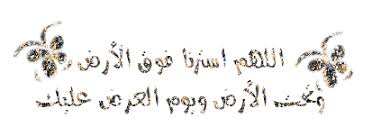 اللهم استرنا فوق الأرض
وتحت الأرض ويوم العرض عليك